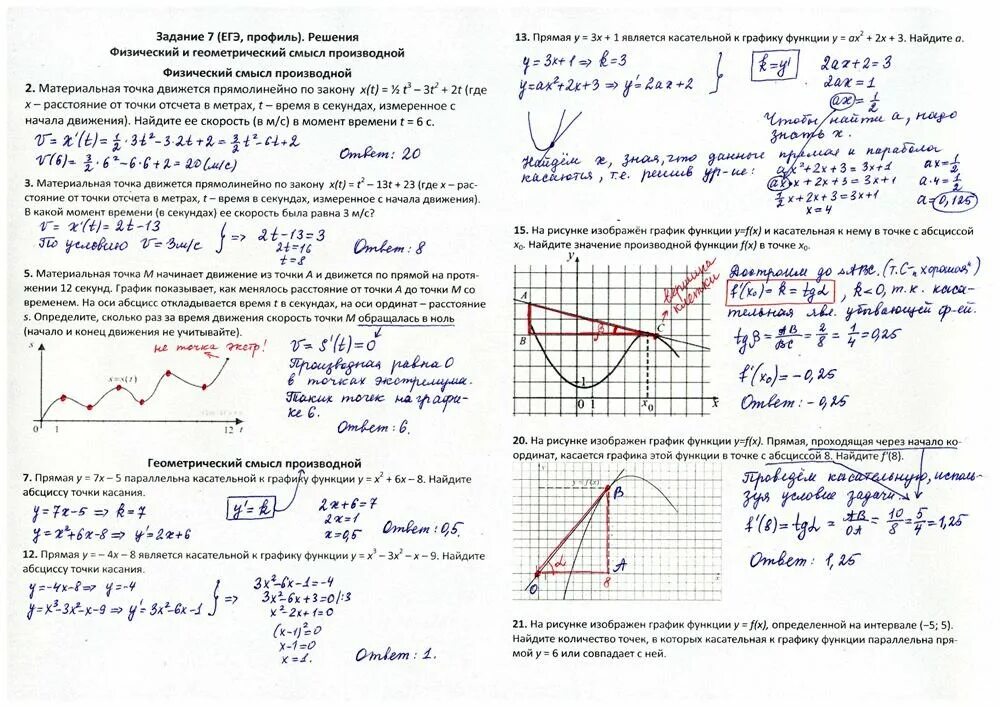 Задание 7 (ЕГЭ, профиль). Решения
Физический и геометрический смысл производной
Физический смысл производной
2. Материальная точка движется прямолинейно по закону x(t) = ½ t³ – 3t² + 2t (где
x – расстояние от точки отсчета в метрах, t – время в секундах, измеренное с
начала движения). Найдите ее скорость (в м/с) в момент времени t = 6 с.
V = x'(t) = 1/2 · 3t² - 3·2t + 2 = 3/2 t² - 6t + 2
V(6) = 3/2 · 6² - 6·6 + 2 = 20 (м/с)
Ответ: 20
3. Материальная точка движется прямолинейно по закону x(t) = t² – 13t + 23 (где x – рас-
стояние от точки отсчета в метрах, t – время в секундах, измеренное с начала движения).
В какой момент времени (в секундах) ее скорость была равна 3 м/с?
V = x'(t) = 2t - 13
По условию V = 3м/с
} => 2t - 13 = 3
2t = 16
t = 8
Ответ: 8
5. Материальная точка M начинает движение из точки A и движется по прямой на протя-
жении 12 секунд. График показывает, как менялось расстояние от точки A до точки M со
временем. На оси абсцисс откладывается время t в секундах, на оси ординат – расстояние
s. Определите, сколько раз за время движения скорость точки M обращалась в ноль
(начало и конец движения не учитывайте).
s
не точка экстр!
s = s(t)
0 1 12 t
V = S'(t) = 0
Производная равна 0
в точках экстремума.
Таких точек на графи-
ке 6.
Ответ: 6.
Геометрический смысл производной
7. Прямая y = 7x – 5 параллельна касательной к графику функции y = x² + 6x – 8. Найдите
абсциссу точки касания.
y = 7x - 5 => k = 7
y = x² + 6x - 8 => y' = 2x + 6
y' = k
2x + 6 = 7
2x = 1
x = 0,5
Ответ: 0,5.
12. Прямая y = – 4x – 8 является касательной к графику функции y = x³ – 3x² – x – 9. Найдите
абсциссу точки касания.
y = -4x - 8 => y = -4
y = x³ - 3x² - x - 9 => y' = 3x² - 6x - 1
} =>
3x² - 6x - 1 = -4
3x² - 6x + 3 = 0 /:3
x² - 2x + 1 = 0
(x - 1)² = 0
x - 1 = 0
x = 1.
Ответ: 1.
13. Прямая y = 3x + 1 является касательной к графику функции y = ax² + 2x + 3. Найдите a.
y = 3x + 1 => k = 3
y = ax² + 2x + 3 => y' = 2ax + 2
k = y'
2ax + 2 = 3
2ax = 1
ax = 1/2
Чтобы найти a, надо
знать x.
Найдём x, зная, что данные прямая и парабола
касаются, т.е. решив ур-ние:
ax² + 2x + 3 = 3x + 1
ax·x + 2x + 3 = 3x + 1
1/2 x + 2x + 3 = 3x + 1
x = 4
ax = 1/2
a·4 = 1/2
a = 0,125
15. На рисунке изображён график функции y=f(x) и касательная к нему в точке с абсциссой
x₀. Найдите значение производной функции f(x) в точке x₀.
y
A
B
β
C
вершина
клетки
1
0 1 x₀ x
Достроим до △ABC. (т.С-"хорошая")
f'(x₀) = k = tgα, k < 0, т.к. каса-
тельная явл. убывающей ф-ей.
tgβ = AB/BC = 2/8 = 1/4 = 0,25
f'(x₀) = -0,25
Ответ: -0,25
20. На рисунке изображен график функции y=f(x). Прямая, проходящая через начало ко-
ординат, касается графика этой функции в точке с абсциссой 8. Найдите f'(8).
y = f(x)
B
α
O
A
8
Проведём касательную, исполь-
зуя условие задачи
f'(8) = tgα = AB/OA = 10/8 = 5/4 = 1,25
Ответ: 1,25
21. На рисунке изображен график функции y = f(x), определенной на интервале (–5; 5).
Найдите количество точек, в которых касательная к графику функции параллельна пря-
мой y = 6 или совпадает с ней.